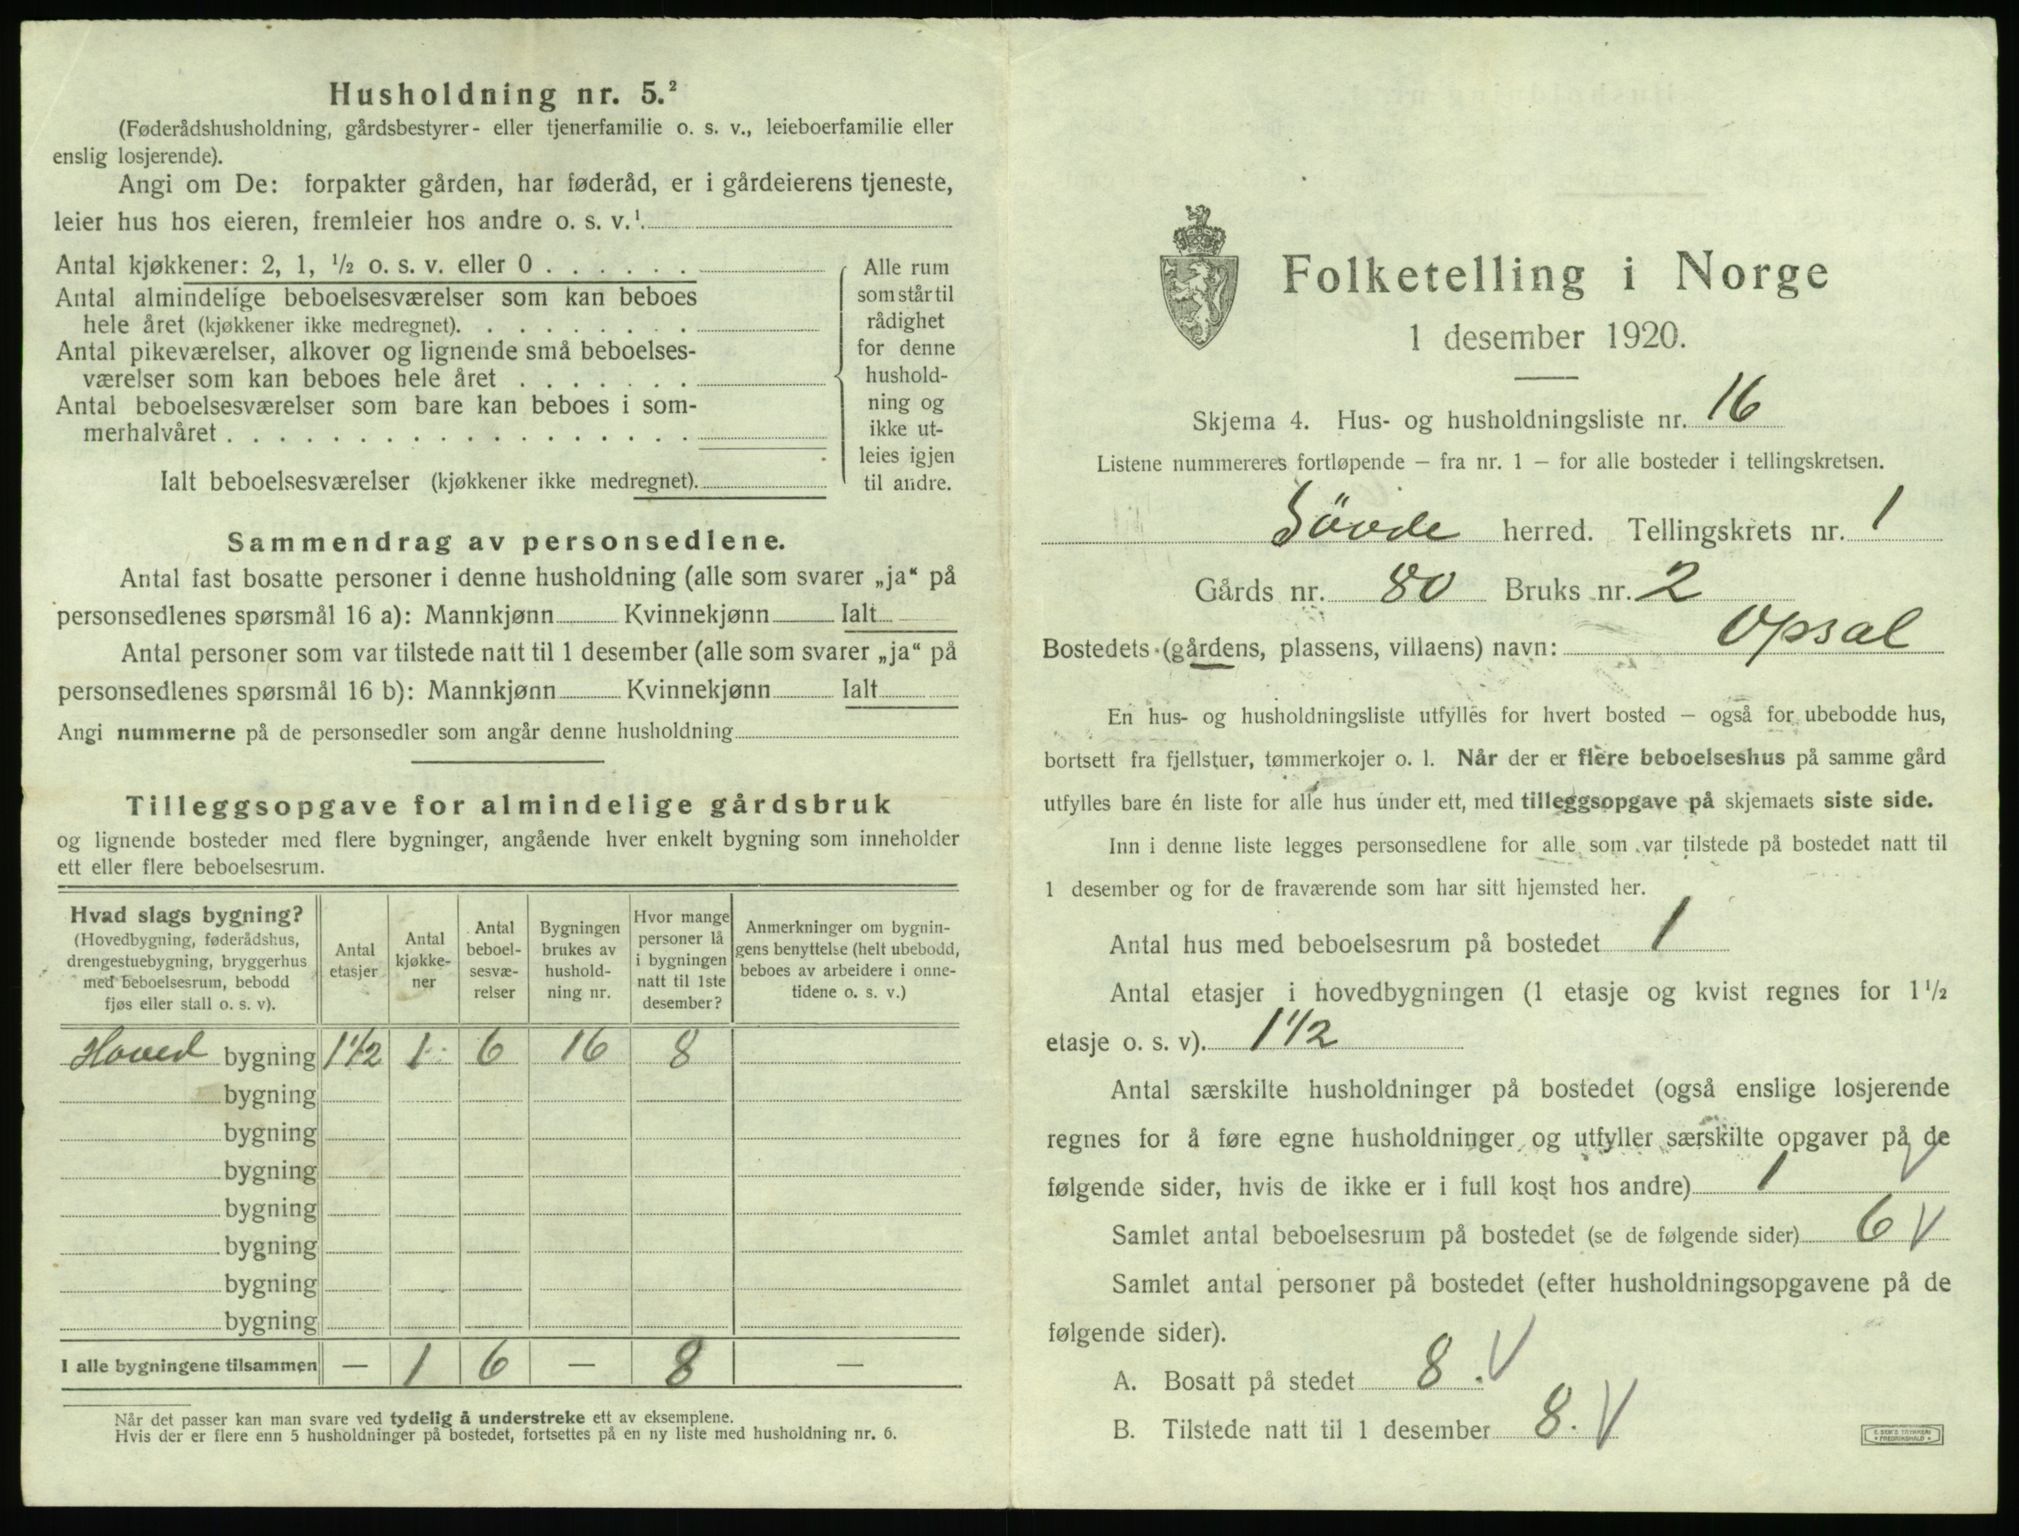 Husholdning nr. 5.²
(Føderådshusholdning, gårdsbestyrer- eller tjenerfamilie o. s. v., leieboerfamilie eller
enslig losjerende).
Angi om De: forpakter gården, har føderåd, er i gårdeierens tjeneste,
leier hus hos eieren, fremleier hos andre o. s. v.¹
Antal kjøkkener: 2, 1, ½ o. s. v. eller 0 . . . . . .
Antal almindelige beboelsesværelser som kan beboes
hele året (kjøkkener ikke medregnet). . . . . . . . .
Antal pikeværelser, alkover og lignende små beboelses-
værelser som kan beboes hele året . . . . . . .
Antal beboelsesværelser som bare kan beboes i som-
merhalvåret . . . . . . . . . . . . . . . . . .
Ialt beboelsesværelser (kjøkkener ikke medregnet).
Alle rum
som står til
rådighet
for denne
hushold-
ning og
ikke ut-
leies igjen
til andre.
Sammendrag av personsedlene.
Antal fast bosatte personer i denne husholdning (alle som svarer „ja“ på
personsedlenes spørsmål 16 a): Mannkjønn Kvinnekjønn Ialt
Antal personer som var tilstede natt til 1 desember (alle som svarer „ja“ på
personsedlenes spørsmål 16 b): Mannkjønn Kvinnekjønn Ialt
Angi nummerne på de personsedler som angår denne husholdning
Tilleggsopgave for almindelige gårdsbruk
og lignende bosteder med flere bygninger, angående hver enkelt bygning som inneholder
ett eller flere beboelsesrum.
Hvad slags bygning?
(Hovedbygning, føderådshus,
drengestuebygning, bryggerhus
med beboelsesrum, bebodd
fjøs eller stall o. s. v).
Antal
etasjer
Antal
kjøkke-
ner
Antal
beboel-
sesvæ-
relser
Bygningen
brukes av
hushold-
ning nr.
Hvor mange
personer lå
i bygningen
natt til 1ste
desember?
Anmerkninger om bygnin-
gens benyttelse (helt ubebodd,
beboes av arbeidere i onne-
tidene o. s. v.)
Hoved bygning 1 1/2 1 6 16 8
bygning
bygning
bygning
bygning
bygning
bygning
bygning
I alle bygningene tilsammen — 1 6 — 8 —
Når det passer kan man svare ved tydelig å understreke ett av eksemplene.
Hvis der er flere enn 5 husholdninger på bostedet, fortsettes på en ny liste med husholdning nr. 6.
Folketelling i Norge
1 desember 1920.
Skjema 4. Hus- og husholdningsliste nr. 16
Listene nummereres fortløpende — fra nr. 1 — for alle bosteder i tellingskretsen.
Søvde herred. Tellingskrets nr. 1
Gårds nr. 80 Bruks nr. 2
Bostedets (gårdens, plassens, villaens) navn: Opsal
En hus- og husholdningsliste utfylles for hvert bosted — også for ubebodde hus,
bortsett fra fjellstuer, tømmerkojer o. l. Når der er flere beboelseshus på samme gård
utfylles bare én liste for alle hus under ett, med tilleggsopgave på skjemaets siste side.
Inn i denne liste legges personsedlene for alle som var tilstede på bostedet natt til
1 desember og for de fraværende som har sitt hjemsted her.
Antal hus med beboelsesrum på bostedet 1
Antal etasjer i hovedbygningen (1 etasje og kvist regnes for 1 1/2
etasje o. s. v). 1 1/2
Antal særskilte husholdninger på bostedet (også enslige losjerende
regnes for å føre egne husholdninger og utfyller særskilte opgaver på de
følgende sider, hvis de ikke er i full kost hos andre) 1
Samlet antal beboelsesrum på bostedet (se de følgende sider) 6
Samlet antal personer på bostedet (efter husholdningsopgavene på de
følgende sider).
A. Bosatt på stedet 8.
B. Tilstede natt til 1 desember 8.